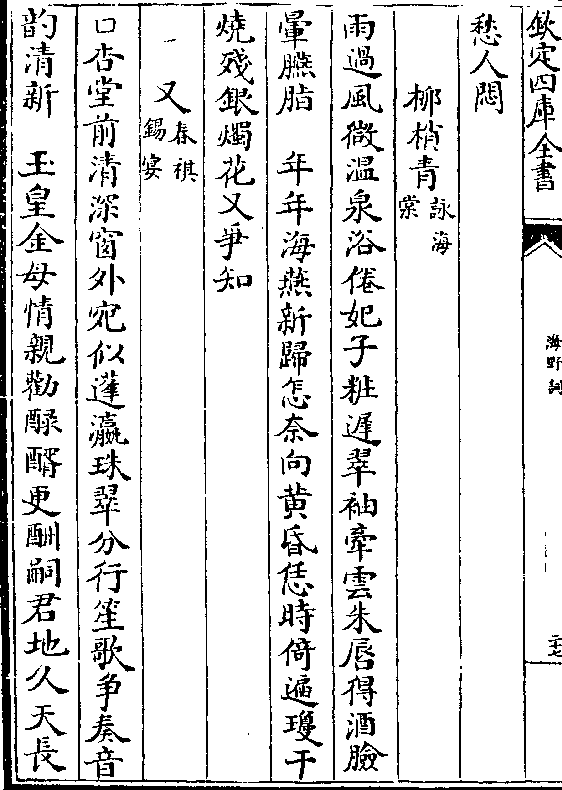 欽定四庫全書
海野詞
二十七
愁人悶
柳梢青詠海棠
雨過風微溫泉浴倦妃子粧遲翠袖牽雲朱唇得酒臉
暈臙脂　年年海燕新歸怎奈向黄昏恁時倚遍瓊干
燒殘銀燭花又爭知
又春祺錫宴
口杏堂前清深窗外宛似蓬瀛珠翠分行笙歌争奏音
韵清新　玉皇金母情親勸醁醑更酬嗣君地久天長